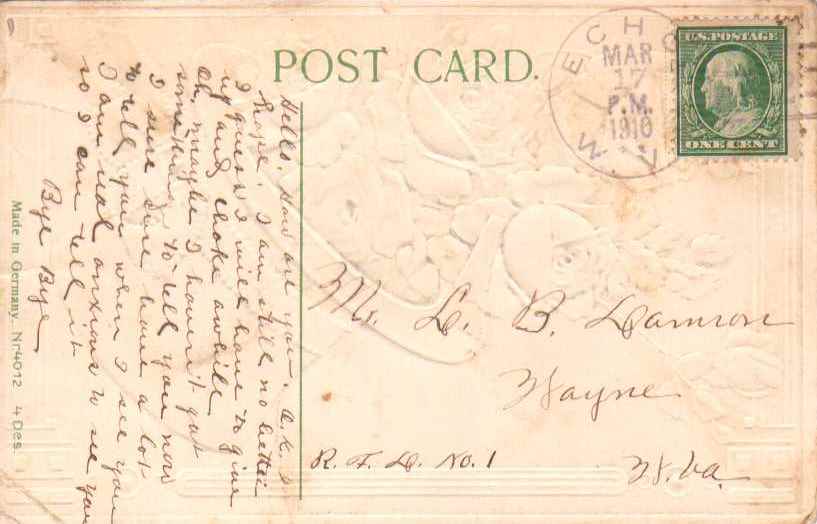 POST CARD.
ECHO
MAR
17
P.M.
1910
W. VA.
U.S. POSTAGE
ONE CENT
Hello. How are you. O.K. I
hope. I am still no better
I guess I will have to give
up and choke awhile
Oh, maybe I haven't got
something to tell you now
I sure have a lot
to tell you when I see you
I am not anxious to see you
so I can tell it
Bye Bye
Mr. L. B. Damron
Wayne
R. F. D. No. 1
W. Va.
Made in Germany. Nr 4012 4 Des.